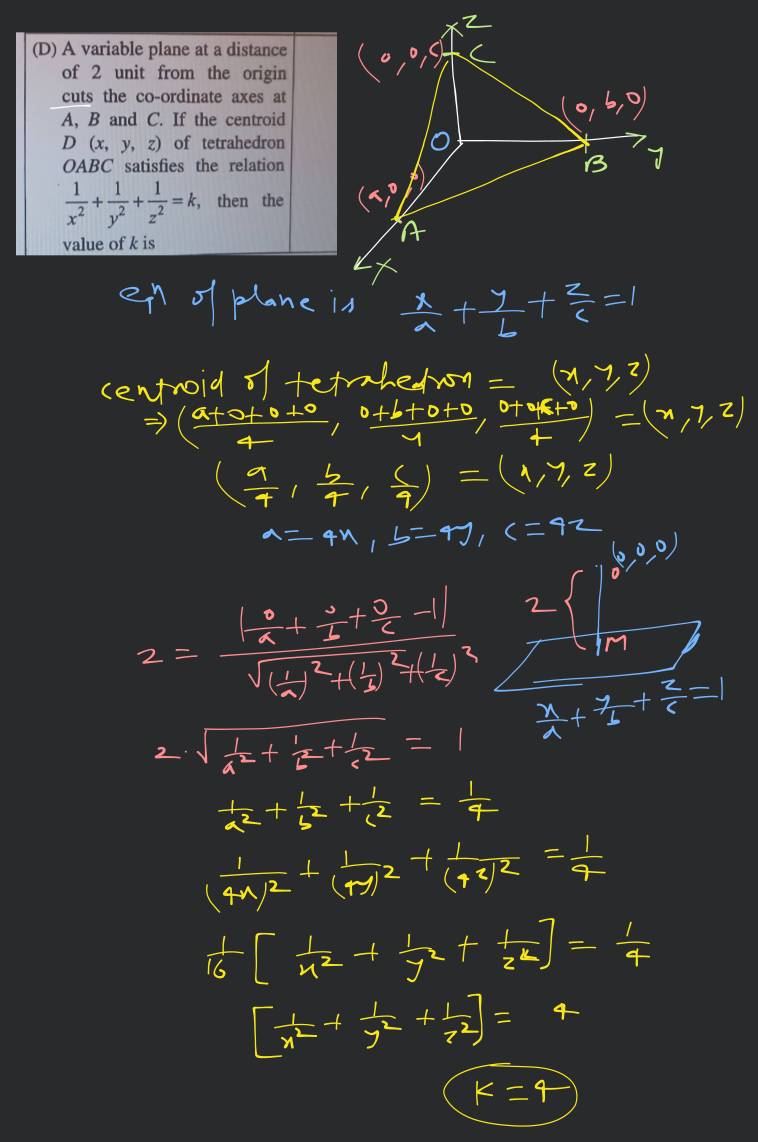 (D) A variable plane at a distance
of 2 unit from the origin
cuts the co-ordinate axes at
A, B and C. If the centroid
D (x, y, z) of tetrahedron
OABC satisfies the relation
1/x² + 1/y² + 1/z² = k, then the
value of k is
Z
(0,0,C) C
(0,b,0)
O
B
y
(a,0,0)
A
X
eqn of plane is x/a + y/b + z/c = 1
centroid of tetrahedron = (x,y,z)
⇒ ((a+0+0+0)/4, (0+b+0+0)/4, (0+0+c+0)/4) = (x,y,z)
(a/4, b/4, c/4) = (x,y,z)
a=4x, b=4y, c=4z
(0,0,0)
0
2
M
x/a + y/b + z/c = 1
2 = |0/a + 0/b + 0/c - 1| / √((1/a)² + (1/b)² + (1/c)²)
2·√(1/a² + 1/b² + 1/c²) = 1
1/a² + 1/b² + 1/c² = 1/4
1/(4x)² + 1/(4y)² + 1/(4z)² = 1/4
1/16 [1/x² + 1/y² + 1/z²] = 1/4
[1/x² + 1/y² + 1/z²] = 4
K=4